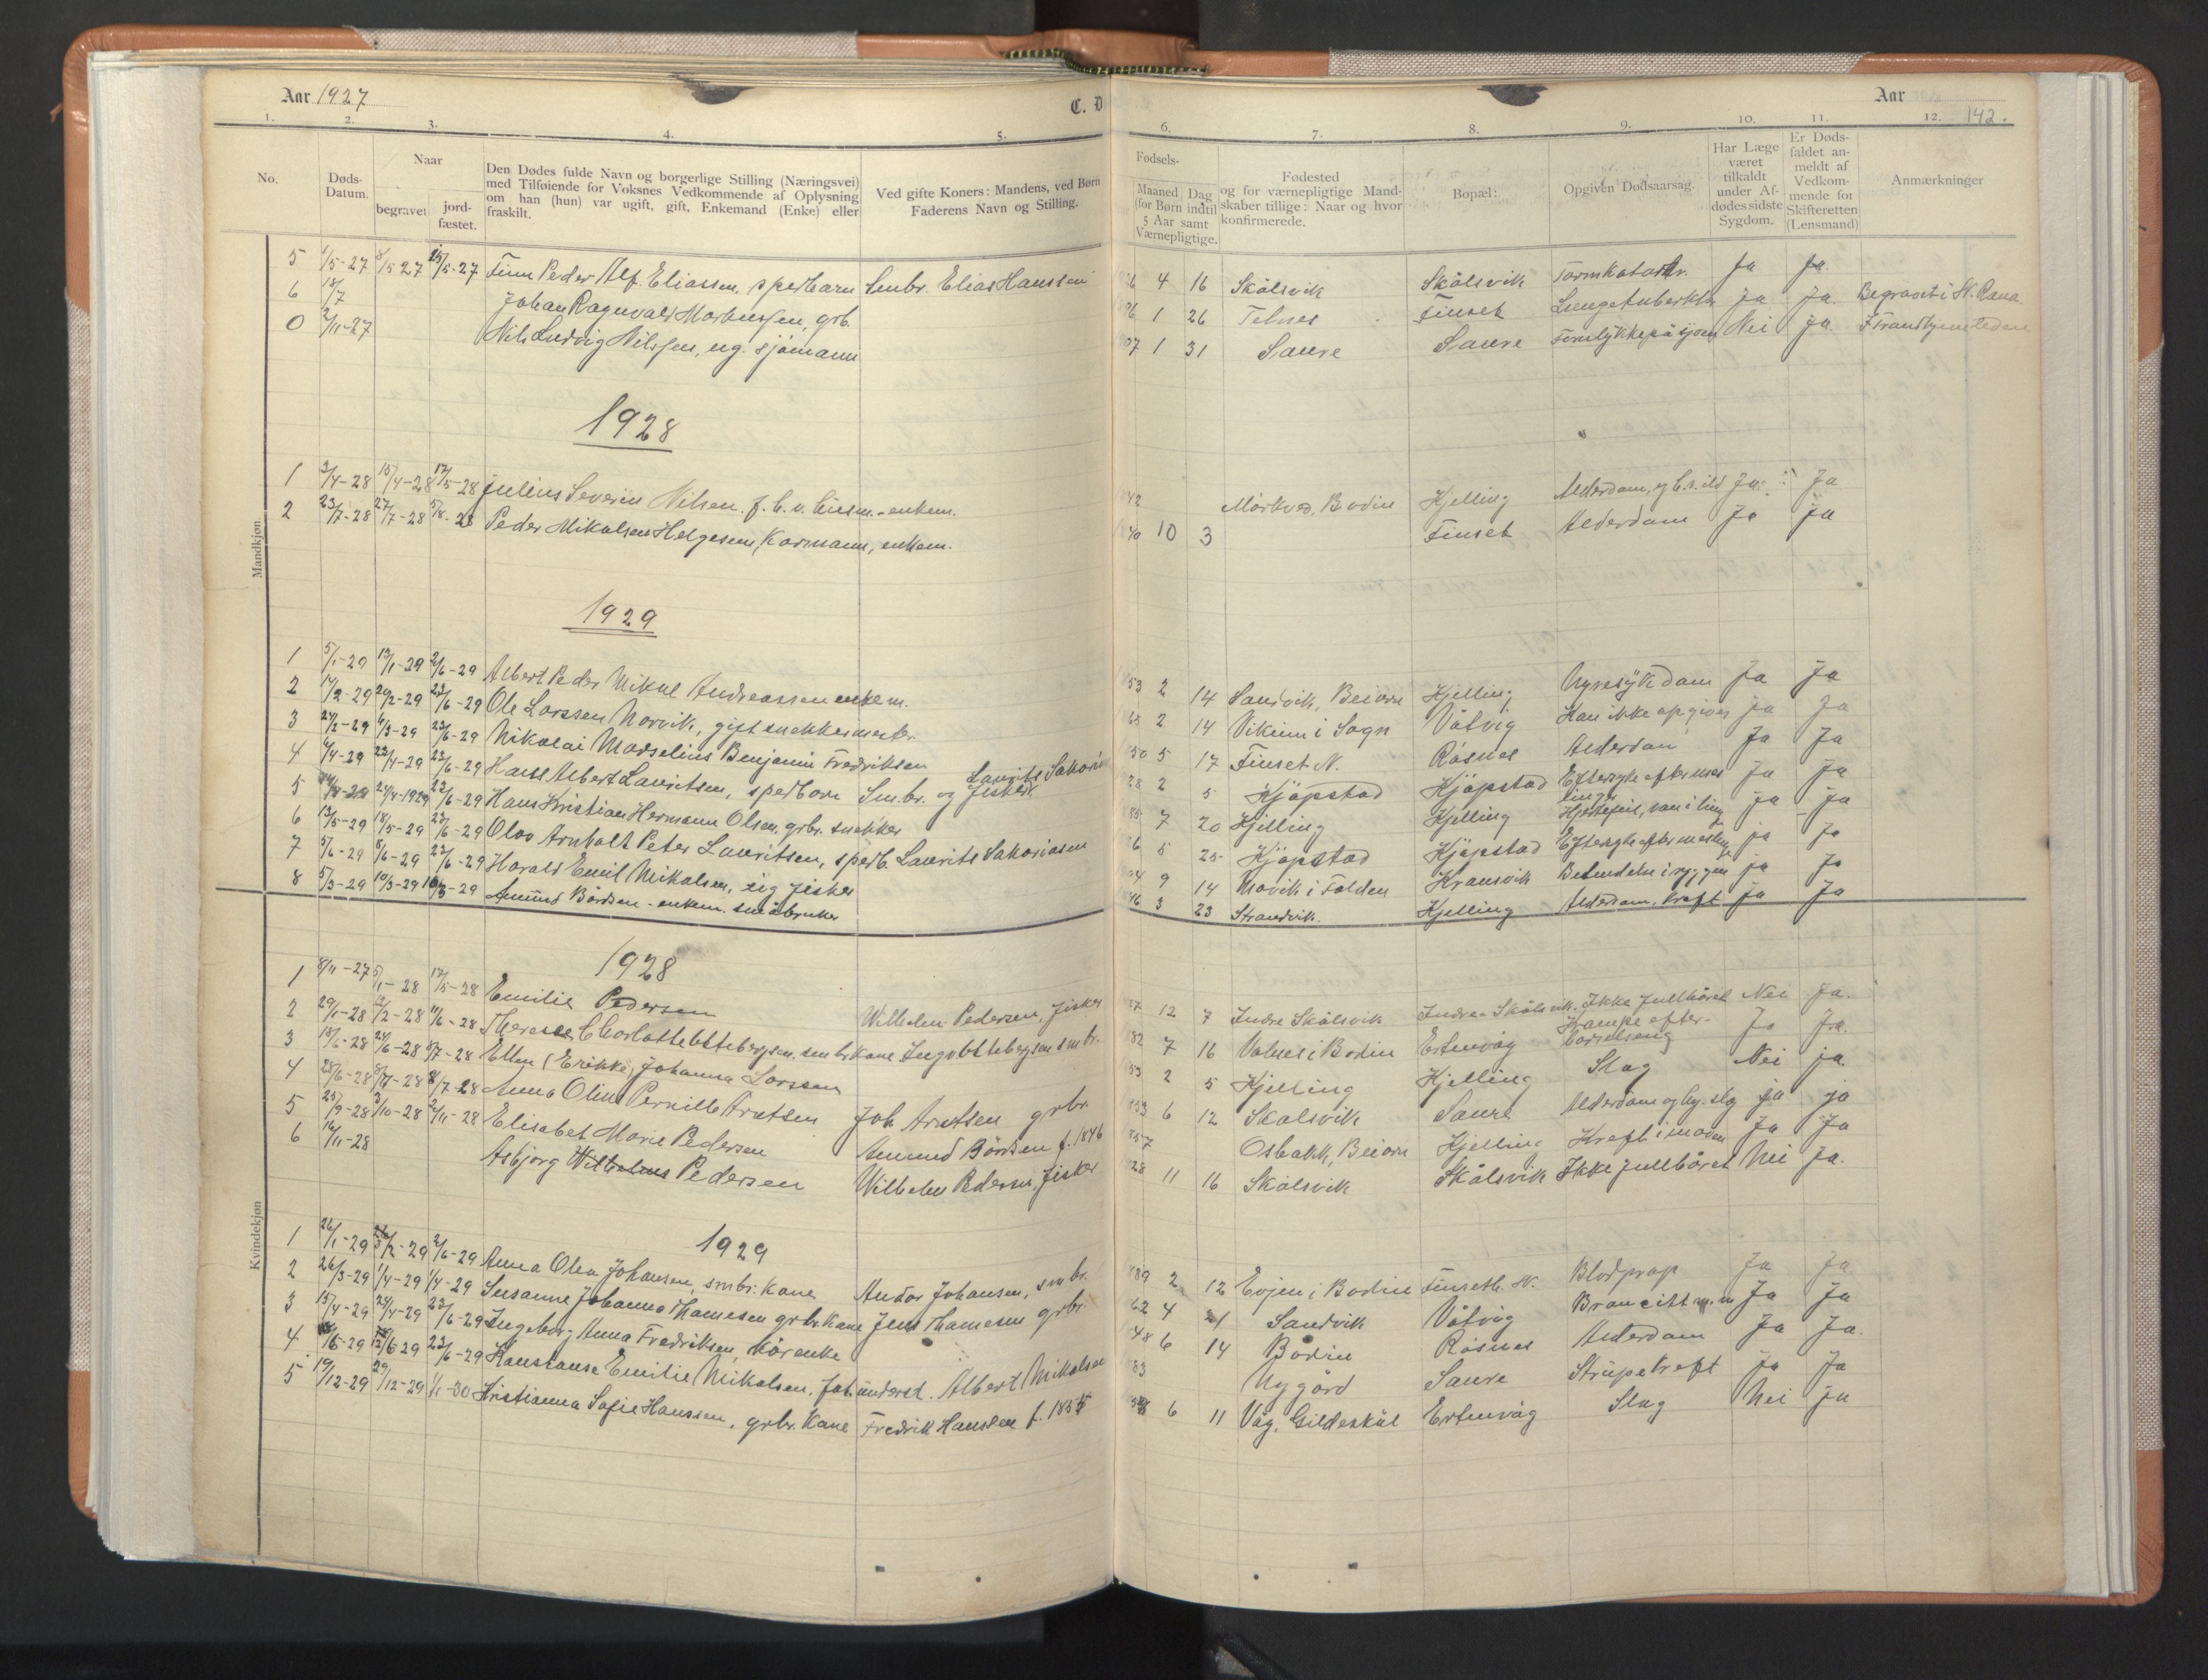 Aar 1927
C. D
Aar
142.
1. 2. 3. 4. 5. 6. 7. 8. 9. 10. 11. 12.
No.
Døds-
Datum.
Naar
begravet
jord-
fæstet.
Den Dødes fulde Navn og borgerlige Stilling (Næringsvei)
med Tilføiende for Voksnes Vedkommende af Oplysning
om han (hun) var ugift, gift, Enkemand (Enke) eller
fraskilt.
Ved gifte Koners: Mandens, ved Børn
Faderens Navn og Stilling.
Fødsels-
Maaned Dag
(for Børn indtil
5 Aar samt
Værnepligtige.
Fødested
og for værnepligtige Mand-
skaber tillige: Naar og hvor
konfirmerede.
Bopæl:
Opgiven Dødsaarsag.
Har Læge
været
tilkaldt
under Af-
dødes sidste
Sygdom.
Er Døds-
faldet an-
meldt af
Vedkom-
mende for
Skifteretten
(Lensmand)
Anmærkninger
Mandkjøn.
5 1/5-27 8/5 27 15/5-27 Finn Peder Alf. Eliassen, spedbarn Smbr. Elias Hanssen 26 4 16 Skålsvik Skålsvik Tarmkatarr. Ja Ja.
6 18/7 Johan Ragnvald Markussen, grb. 1 26 Telnes Finset Lungetuberkl. Ja Ja. Begravet i N. Rana.
0 2/11-27 Nils Ludvig Nilssen, ug. sjømann 07 1 31 Saure Saure Forulykke på sjøen Nei ja
1928
1 3/4-28 15/4-28 17/5-28 Julius Severin Nilsen. f. b. v. - enkem. 42 Mørkved, Bodin Kjelling Alderdom, Ja Ja
2 23/7-28 27/7-28 5/8-28 Peder Mikalsen Helgesen, Kårmann, enkem. 40 10 3 Finset Alderdom Ja Ja
1929
1 5/1-29 13/1-29 2/6-29 Albert Peder Mikal Andreassen enkem. 53 2 14 Sandvik, Beiarn Kjelling Nyresykdom Ja Ja
2 17/2-29 24/2-29 23/6-29 Ole Larssen Norvik, gift snekkermester 2 14 Vikum i Sogn Våtvig Kan ikke opgives ja Ja
3 24/2-29 4/3-29 23/6-29 Nikolai Marselius Benjamin Fredriksen 50 5 17 Finset N. Råsnes Alderdom Ja Ja
4 4/4-29 23/4-29 23/6-29 Hans Albert Lauritsen, spedbarn Sm.br. og fisker Laurits Sakarias 28 2 5 Kjøpstad Kjøpstad Eftersyke efter mes linger Ja Ja
5 24/4-1929 23/6-29 Hans Kristian Hermann Olsen, grbr. snekker 7 20 Kjelling Kjelling Hjertefeil, Ja Ja
6 13/5-29 18/5-29 23/6-29 Olav Arnholt Peter Lauritsen, spedb. Laurits Sakariasen 26 5 25 Kjøpstad Kjøpstad Eftersyke efter ja Ja
7 5/6-29 8/6-29 23/6-29 Harald Emil Mikalsen, ug fisker 04 9 14 Movik i Folden Kransvik Betendelse i ryggen ja Ja
8 5/3-29 10/3-29 10/3-29 Amund Bårdsen - enkem. småbruker 46 3 23 Strandvik. Kjelling Alderdom, kreft Ja Ja
Kvindekjøn
1928
1 8/11-27 5/1-28 17/5-28 Emilie Pedersen Wilhelm Pedersen, fisker 27 12 7 Indre Skålsvik Indre Skålsvik. Ikke fullbåret Nei Ja.
2 29/1-28 12/2-28 11/6-28 Therese Charlotte Ettebergsen. smbr kone Ingv. Ettebergsen smbr. 82 7 16 Valnes i Bodin Ertenvåg Krampe efter barselseng Ja Ja.
3 15/6-28 24/6-28 8/7-28 Ellen (Erikke) Johanna Larssen 53 2 5 Kjelling Kjelling Slag Nei ja.
4 28/6-28 8/7-28 8/7-28 Anna Olina Pernille Arntsen Joh. Arntsen grbr. 53 6 12 Skålsvik Saure Alderdom og slag ja ja
5 25/9-28 3/10-28 2/11-28 Elisabet Marie Pedersen Amund Bårdsen f. 1846 57 Osbakk, Beiarn Kjelling Kreft i maven Ja Ja
6 16/11-28 Asbjørg Wilhelms Pedersen Wilhelm Pedersen, fisker 28 11 16 Skålsvik Skålsvik Ikke fullbåret Nei Ja.
1929
1 26/1-29 3/2-29 2/6-29 Anna Olea Johansen, smbr. kone Andor Johansen, smbr. 89 2 12 Evjen i Bodin Finseth N. Blodprop Ja Ja
2 26/3-29 1/4-29 1/4-29 Susanne Johanna Hamesen grbr kone Jens Hamesen grbr. 62 4 21 Sandvik Våtvig Broncitt m.m Ja Ja
3 15/4-29 24/4-29 23/6-29 Ingeborg Anna Fredriksen, kårenke 48 6 14 Bodin Råsnes Alderdom Ja Ja.
4 /5-29 12/6 29 23/6-29 Konstanse Emilie Mikalsen, Albert Mikalsen 83 Nygård Saure Strupekreft Ja Ja
5 19/12-29 29/12-29 1/1-30 Kristianna Sofie Hanssen, grbr. kone Fredrik Hanssen f. 1855 6 11 Våg, Gildeskål Ertenvåg Slag Nei ja